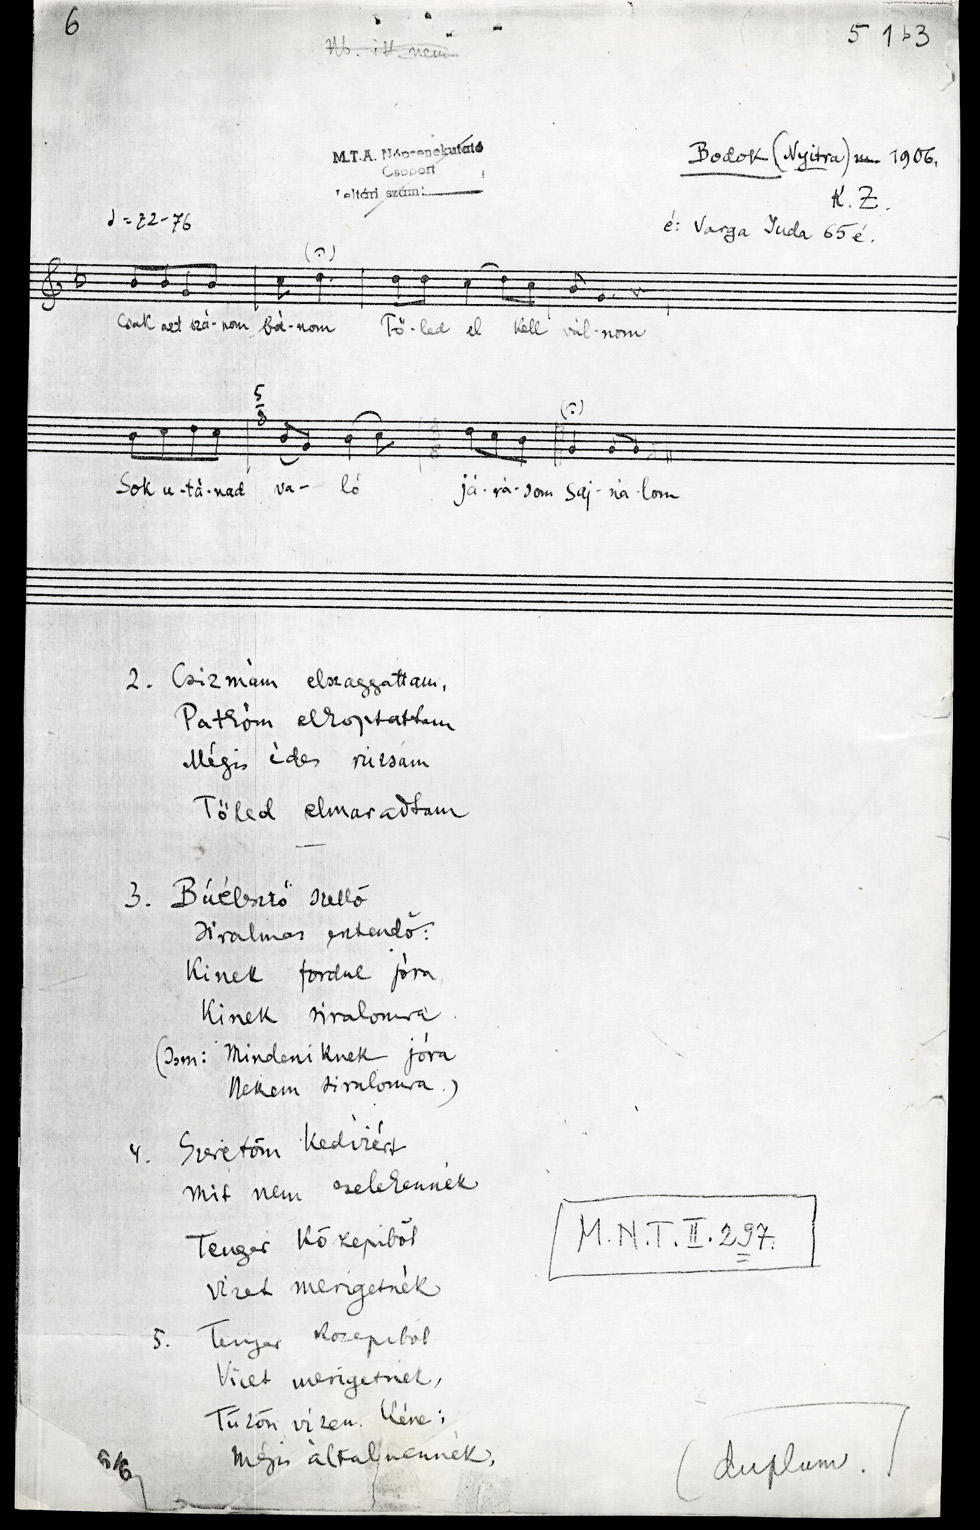 6
5 1 b3
Nb. itt nem
M.T.A. Népzenekutató
Csoport
Leltári szám:
Bodok (Nyitra) 1906.
K. Z.
é: Varga Juda 65 é.
♩ = 72-76
Csak azt szá-nom bá-nom Tő-led el kell vál-nom
5
8
Sok u-tá-nad va- ló já-rá-som saj-ná-lom
2. Csizmám elszaggattam,
Patkóm elkoptattam
Mégis édes rúzsám
Tőled elmaradtam
3. Búélesztő szellő
siralmas esztendő:
Kinek fordul jóra
Kinek siralomra
(Ism: Mindeniknek jóra
Nekem siralomra.)
4. Szeretőm kedviért
mit nem cselekennék
Tenger közepiből
vizet merigetnék
5. Tenger közepiből
Vizet merigetnék,
Tűzön vizen
mégis általmennék.
M.N.T. II. 297.
(duplum.)